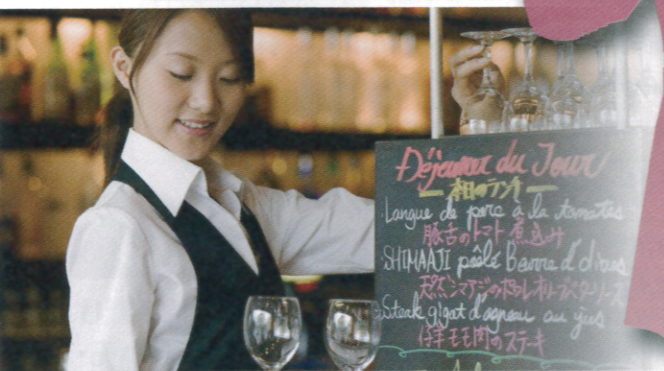 Déjeuner du Jour
本日のランチ
Langue de porc à la tomates
豚舌のトマト煮込み
SHIMAAJI poêlé Beurre d'
天然シマアジのポワレ
Steak gigot d'agneau au jus
仔羊モモ肉のステーキ